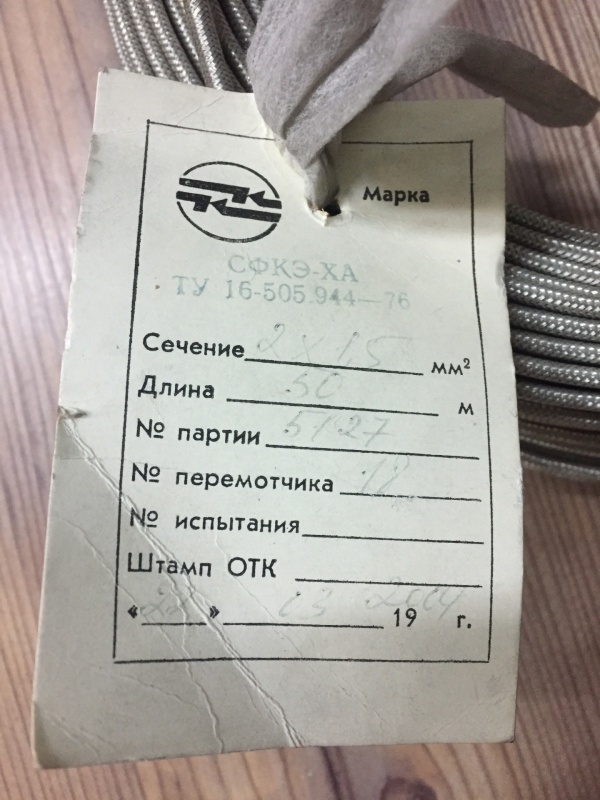 Марка
СФКЭ-ХА
ТУ 16-505.944—76
Сечение 2х1,5 мм²
Длина 50 м
№ партии 5127
№ перемотчика 12
№ испытания
Штамп ОТК
«22» 03 2004 19 г.